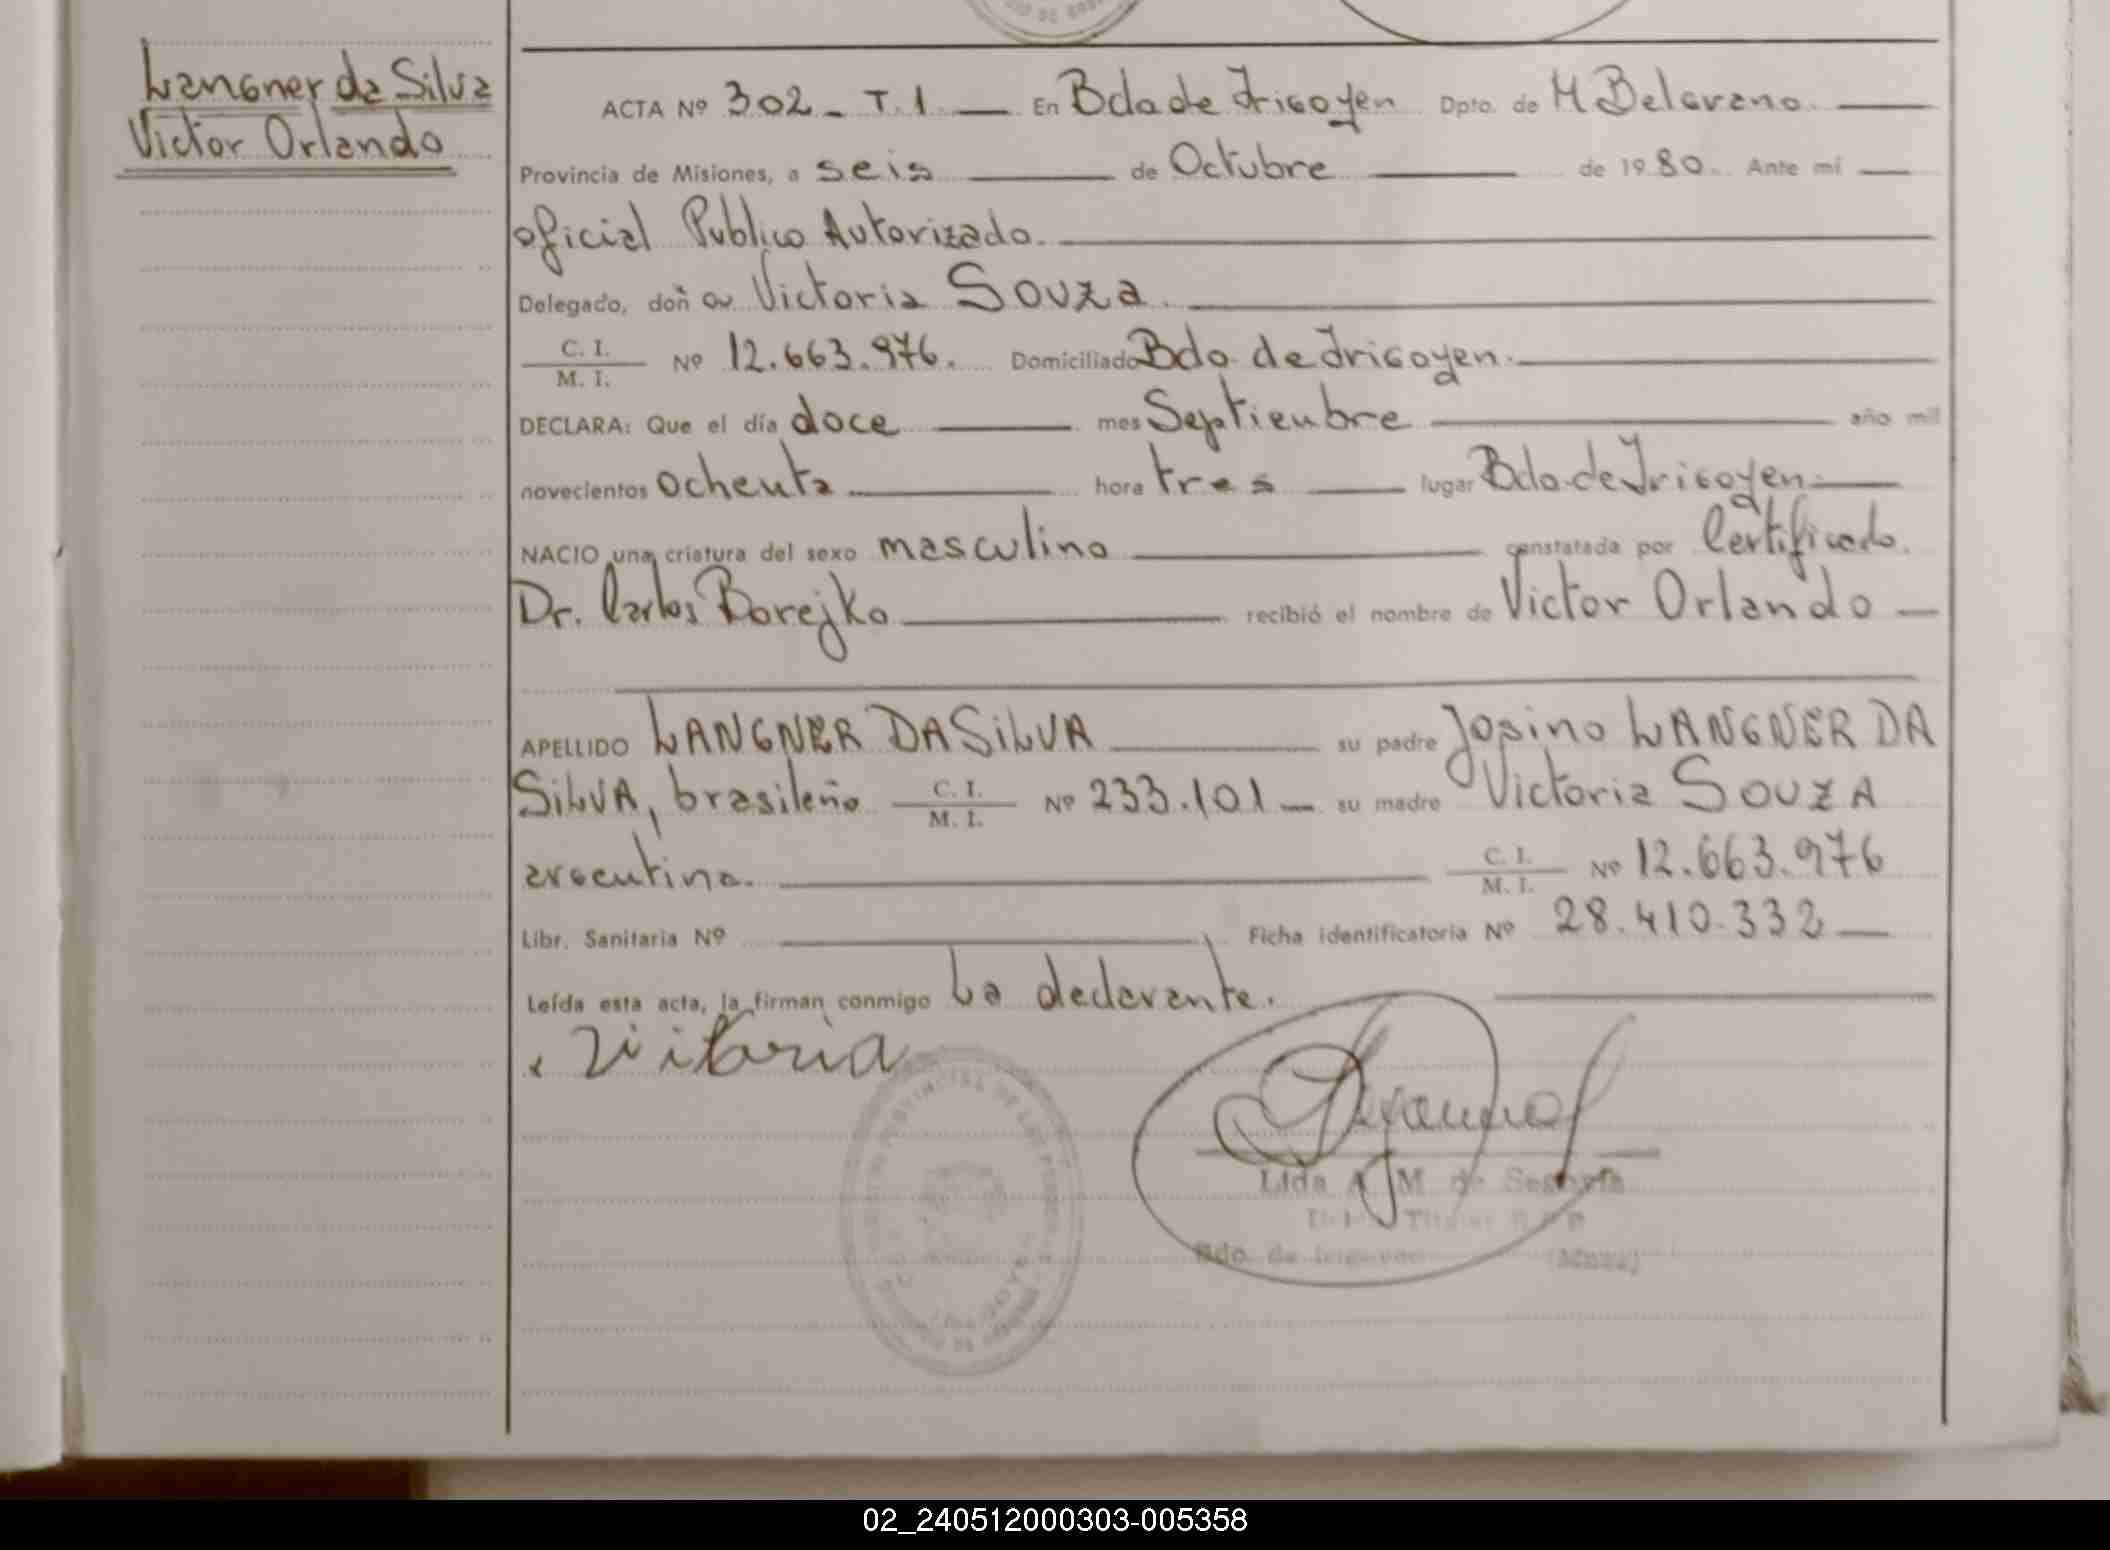 Langner da Silva
Victor Orlando
ACTA Nº 302 - T.1 En Bdo de Irigoyen Dpto. de M Belgrano
Provincia de Misiones, a seis de Octubre de 1980. Ante mí
oficial Publico Autorizado.
Delegado, doña Victoria Souza.
C. I.
M. I. Nº 12.663.976. Domiciliado Bdo. de Irigoyen.
DECLARA: Que el día doce mes Septiembre año mil
novecientos ochenta hora tres lugar Bdo. de Irigoyen.
NACIO una criatura del sexo masculino constatada por Certificado.
Dr. Carlos Borejko recibió el nombre de Victor Orlando
APELLIDO LANGNER DA SILVA su padre Josino LANGNER DA
SILVA, brasileño C. I. M. I. Nº 233.101 su madre Victoria SOUZA
argentina. C. I. M. I. Nº 12.663.976
Libr. Sanitaria Nº Ficha identificatoria Nº 28.410.332
Leída esta acta, la firman conmigo La declarante.
Vitoria
PROVINCIAL DE LAS
Lida A. M de
Titular
Bdo. de Irigoyen (Mnes)
02_240512000303-005358